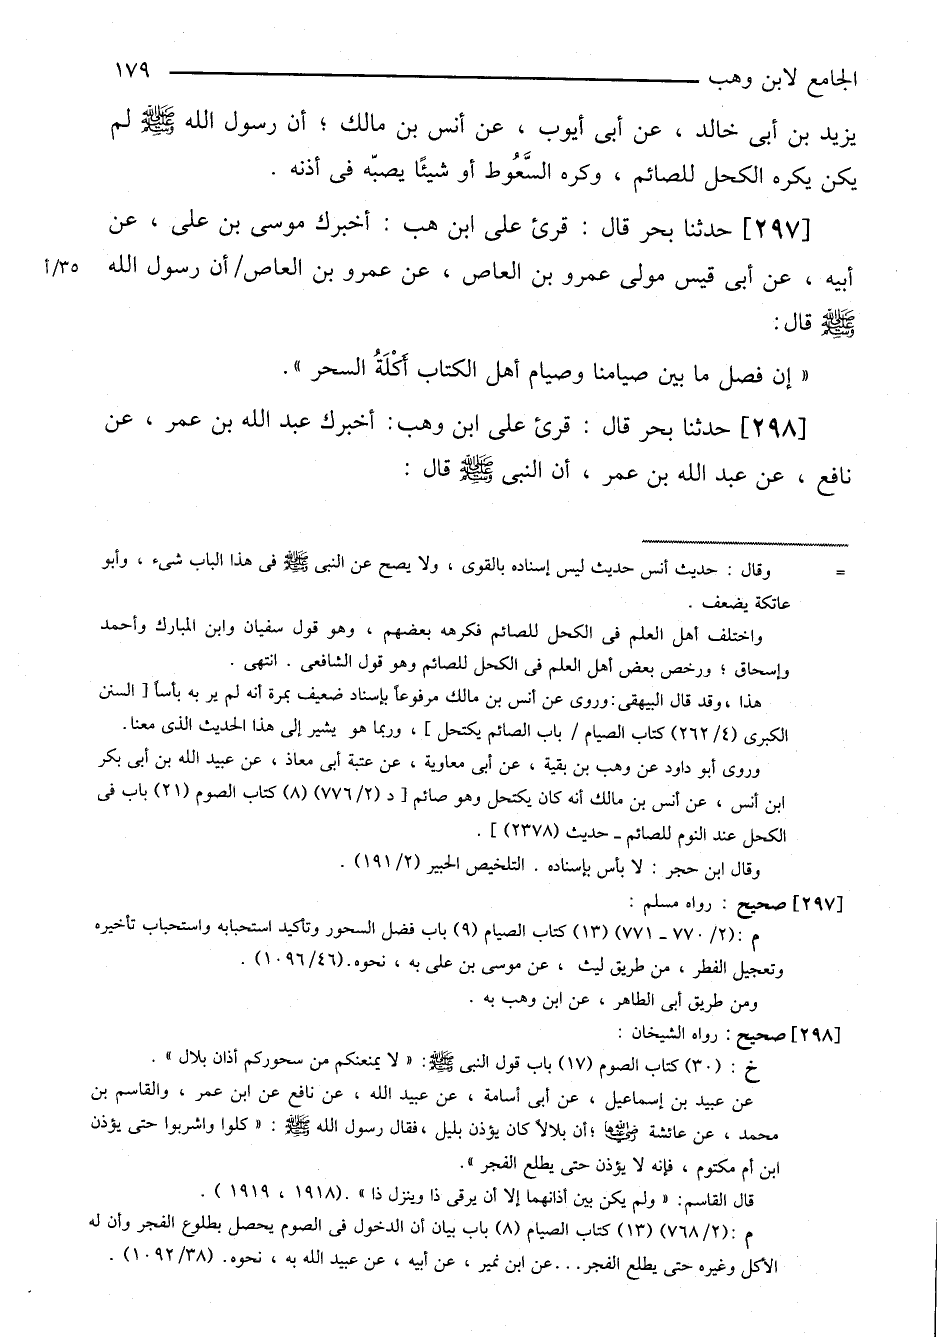 الجامع لابن وهب ١٧٩
يزيد بن أبى خالد ، عن أبى أيوب ، عن أنس بن مالك ؛ أن رسول الله ﷺ لم
يكن يكره الكحل للصائم ، وكره السَّعُوط أو شيئًا يصبّه فى أذنه .
[٢٩٧] حدثنا بحر قال : قرئ على ابن هب : أخبرك موسى بن على ، عن
أبيه ، عن أبى قيس مولى عمرو بن العاص ، عن عمرو بن العاص/ أن رسول الله ٣٥/أ
ﷺ قال:
« إن فصل ما بين صيامنا وصيام أهل الكتاب أَكْلَةُ السحر ».
[٢٩٨] حدثنا بحر قال : قرئ على ابن وهب: أخبرك عبد الله بن عمر ، عن
نافع ، عن عبد الله بن عمر ، أن النبى ﷺ قال :
= وقال : حديث أنس حديث ليس إسناده بالقوى ، ولا يصح عن النبى ﷺ فى هذا الباب شىء ، وأبو
عاتكة يضعف .
واختلف أهل العلم فى الكحل للصائم فكرهه بعضهم ، وهو قول سفيان وابن المبارك وأحمد
وإسحاق ؛ ورخص بعض أهل العلم فى الكحل للصائم وهو قول الشافعى . انتهى .
هذا ،وقد قال البيهقى:وروى عن أنس بن مالك مرفوعاً بإسناد ضعيف بمرة أنه لم ير به بأساً [ السنن
الكبرى (٤/ ٢٦٢) كتاب الصيام / باب الصائم يكتحل ] ، وربما هو يشير إلى هذا الحديث الذى معنا.
وروى أبو داود عن وهب بن بقية ، عن أبى معاوية ، عن عتبة أبى معاذ ، عن عبيد الله بن أبى بكر
ابن أنس ، عن أنس بن مالك أنه كان يكتحل وهو صائم [ د (٢/ ٧٧٦) (٨) كتاب الصوم (٢١) باب فى
الكحل عند النوم للصائم ـ حديث (٢٣٧٨) ] .
وقال ابن حجر : لا بأس بإسناده . التلخيص الحبير (٢/ ١٩١) .
[٢٩٧] صحيح : رواه مسلم :
م :(٢/ ٧٧٠ ـ ٧٧١) (١٣) كتاب الصيام (٩) باب فضل السحور وتأكيد استحبابه واستحباب تأخيره
وتعجيل الفطر ، من طريق ليث ، عن موسى بن على به ، نحوه.(٤٦/ ١٠٩٦) .
ومن طريق أبى الطاهر ، عن ابن وهب به .
[٢٩٨] صحيح : رواه الشيخان :
خ : (٣٠) كتاب الصوم (١٧) باب قول النبى ﷺ: « لا يمنعنكم من سحوركم أذان بلال » .
عن عبيد بن إسماعيل ، عن أبى أسامة ، عن عبيد الله ، عن نافع عن ابن عمر ، والقاسم بن
محمد ، عن عائشة رضي الله عنها ؛أن بلالاً كان يؤذن بليل ،فقال رسول الله ﷺ : « كلوا واشربوا حتى يؤذن
ابن أم مكتوم ، فإنه لا يؤذن حتى يطلع الفجر ».
قال القاسم: « ولم يكن بين أذانهما إلا أن يرقى ذا وينزل ذا » .(١٩١٨ ، ١٩١٩ ) .
م :(٢/ ٧٦٨) (١٣) كتاب الصيام (٨) باب بيان أن الدخول فى الصوم يحصل بطلوع الفجر وأن له
الأكل وغيره حتى يطلع الفجر . . .عن ابن نمير ، عن أبيه ، عن عبيد الله به ، نحوه. (٣٨/ ١٠٩٢) .